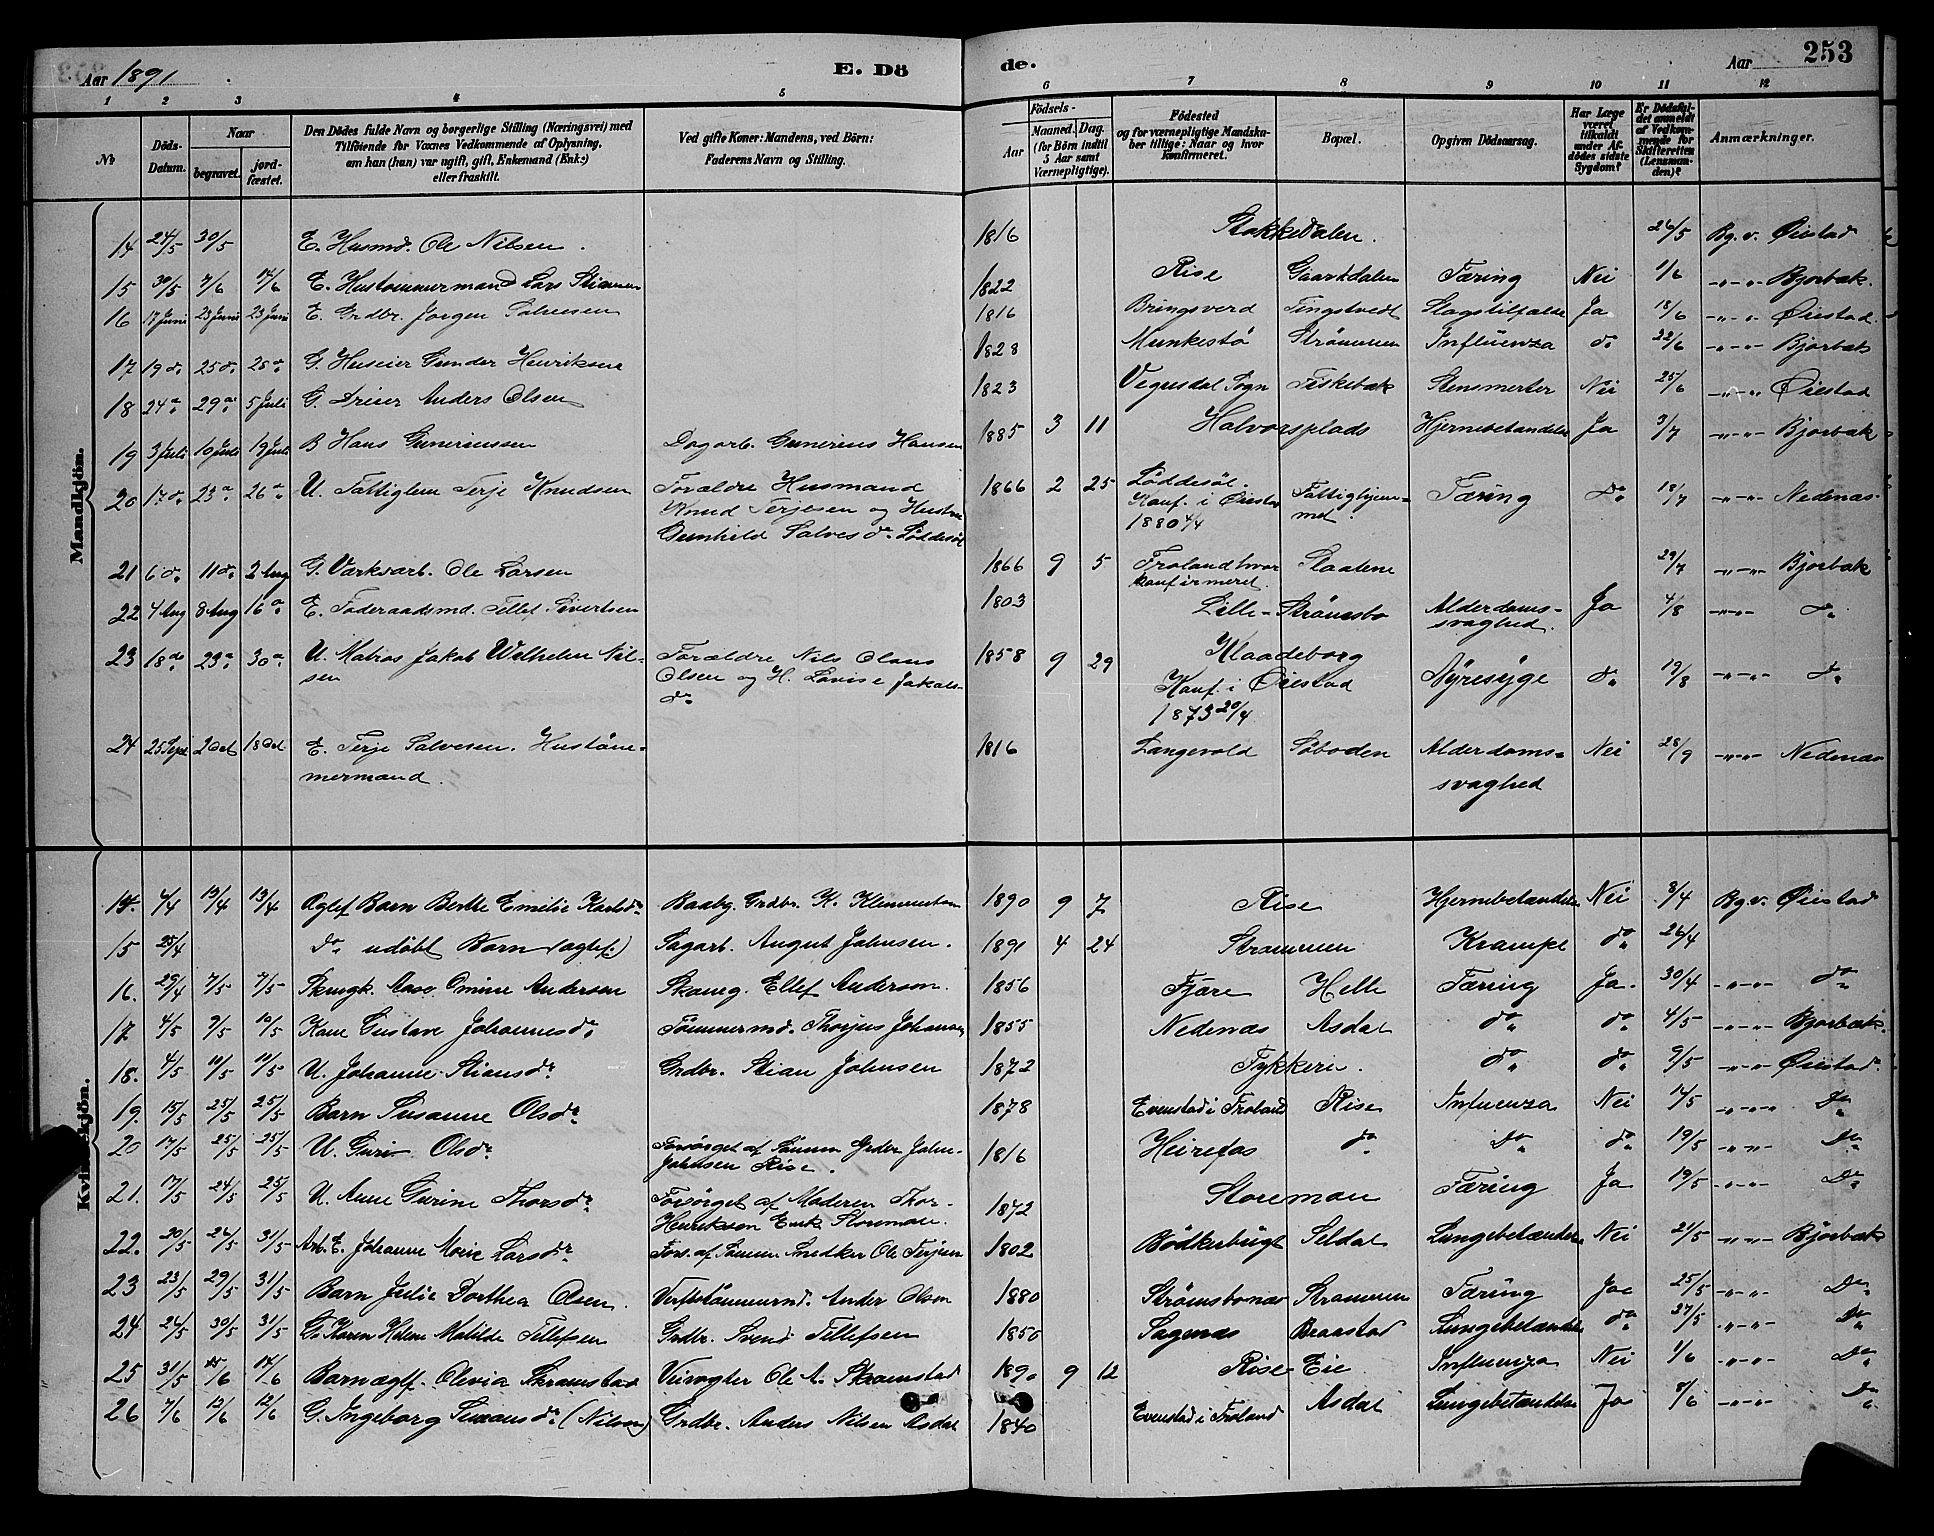 Aar 1891.
E. Dö
de.
Aar
253
1 2 3 4 5 6 7 8 9 10 11 12
No
Döds-Datum.
Naar
begravet.
jord-fæstet.
Den Dödes fulde Navn og borgerlige Stilling (Næringsvei) med
Tilföiende for Voxnes Vedkommende af Oplysning,
om han (hun) var ugift, gift, Enkemand (Enke)
eller fraskilt.
Ved gifte Koner: Mandens, ved Börn:
Faderens Navn og Stilling.
Födsels-
Aar
Maaned. Dag.
(for Börn indtil
5 Aar samt
Værnepligtige).
Födested
og for værnepligtige Mandska-
ber tillige: Naar og hvor
konfirmeret.
Bopæl.
Opgiven Dödsaarsag.
Har Læge
været
tilkaldt
under Af-
dödes sidste
Sygdom?
Er Dödsfal-
det anmeldt
af Vedkom-
mende for
Skifteretten
(Lensman-
den)?
Anmærkninger.
Mandkjön.
14 24/5 30/5 E. Husmd. Ole Nilsen. 1816 Stokkedalen. 26/5 Bg. v. Øiestad
15 30/5 7/6 14/6 E. Hustommermand Lars 1822 Rise Færing Nei 1/6 -"-"- Bjorbæk.
16 17 Juni 23 Juni 23 Juni E. Grdbr. Jorgen Salvesen 1816 Bringsverd Tingstvedt Slagstilfælde Ja 18/6 -"-"- Øiestad.
17 19 do 25 do 28 do G. Huseier Gunder Henriksen 1828 Munkestø Strømmen Influenza do 22/6 -"-"- Bjorbæk
18 24 do 29 do 5 Juli G. Anders Olsen 1823 Vegusdal Sogn Fiskebæk Stensmerter Nei 25/6 -"-"- Øiestad
19 3 Juli 10 Juli 19 Juli B Hans Guneriussen Dagarb. Gunerius Hansen 1885 3 11 Halvorsplads Hjernebetændelse Ja 3/7 -"-"- Bjorbæk
20 17 do 23 do 26 do U. Fattiglem Terje Knudsen Forældre Husmand 1866 2 25 Løddesøl. Fattighjem- Færing do 18/7 -"-"- Nedenæs
Knud Terjesen og Hustru Konf. i Øiestad met.
Gunhild Salvesdr Løddesøl 1880 4/4
21 6 do 11 do 2 Aug G. Værkvarb. Ole Larsen 1866 9 5 Froland hvor Staalene 29/7 -"-"- Bjorbæk
konfirmeret.
22 4 Aug 8 Aug 16 do E. Føderaadsmd. Tellef Sivertsen 1803 Lille-Strømsbo Alderdoms- Ja 4/8 -"-"- do
svaghed.
23 18 do 23 do 30 do U. Matros Jakob Wilhelm Nil- Forældre Nils Olaus 1858 9 29 Klaadeborg Nyresyge do 19/8 -"-"- do
sen Olsen og H. Lovise Jakobs- Konf. i Øiestad
dr 1873 20/4
24 25 Sept 2 Oct 18 Oct E. Terje Salvesen. Hustøm- 1816 Langevold Søboden Alderdoms- Nei 28/9 -"-"- Nedenæs
mermand. svaghed
Kvindekjön.
14. 4/4 13/4 13/4 Ægtef Barn Berthe Emilie Karlsdr Grdbr. K. 1890 9 7 Rise Hjernebetændelse Nei 8/4 Bg. v. Øiestad
15 25/4 do udøbt Barn (ægtef.) Sagarb. August Johnsen. 1891 4 24 Strømmen Krampe do 26/4
16. 29/4 7/5 7/5 Omine Andersen Ellef Anderson. 1856 Fjære Helle Færing Ja. 30/4 -"-"- do
17 4/5 9/5 10/5 Kone Gustave Johannesdr Tømmermd. Thorjus Johansen 1855 Nedenæs Asdal do do 4/5 -"-"- Bjorbæk.
18. 4/5 10/5 10/5 U. Johanne Stiansdr Grdbr. Stian Johnsen 1872 Fykkeri. do do 9/5 -"-"- Øiestad.
19. 15/5 25/5 25/5 Barn Susanne Olsdr 1878 Evenstad i Froland Rise Influenza Nei 17/5 -"-"- Do
20 17/5 25/5 25/5 U. Guri Olsdr Forsørget af Sønnen John 1816 Heirefos do Do do 19/5 -"-"- Do
Johnsen Rise.
21. 17/5 24/5 25/5 U. Anne Gurine Thorsdr Forsørget af Moderen Thor 1872 Storemoen Færing Ja 19/5 -"-"- Do
Henriksen Enk
22. 20/5 24/5 31/5 E. Johanne Marie Larsdr Fors. af Sønnen Snedker Ole Terjsen 1802 Bødkerbugt Seldal Lungebetændelse Nei 21/5 -"-"- Bjorbæk
23 23/5 29/5 31/5 Barn Julie Dorthea Olsen. Anders Olsen 1880 Strømsbonæs Strømmen Færing Ja 25/5 -"-"- Do
24 26/5 30/5 31/5 G. Karen Helene Matilde Tellefsen Grdbr. Svend Tellefsen 1850 Sagenæs Braastad Lungebetændelse do 27/5 -"-"- Do
25 31/5 14/6 Barn ægtf. Olevia Skramstad Veivogter Ole A. Skramstad 1890 9 12 Rise Eie Influenza Nei 1/6 -"-"- Do
26 7/6 12/6 12/6 G. Ingeborg (Nilsen) Grdbr. Anders Nilsen Asdal 1840 Evenstad i Froland Asdal Lungebetændelse Ja 8/6 -"-"- Do